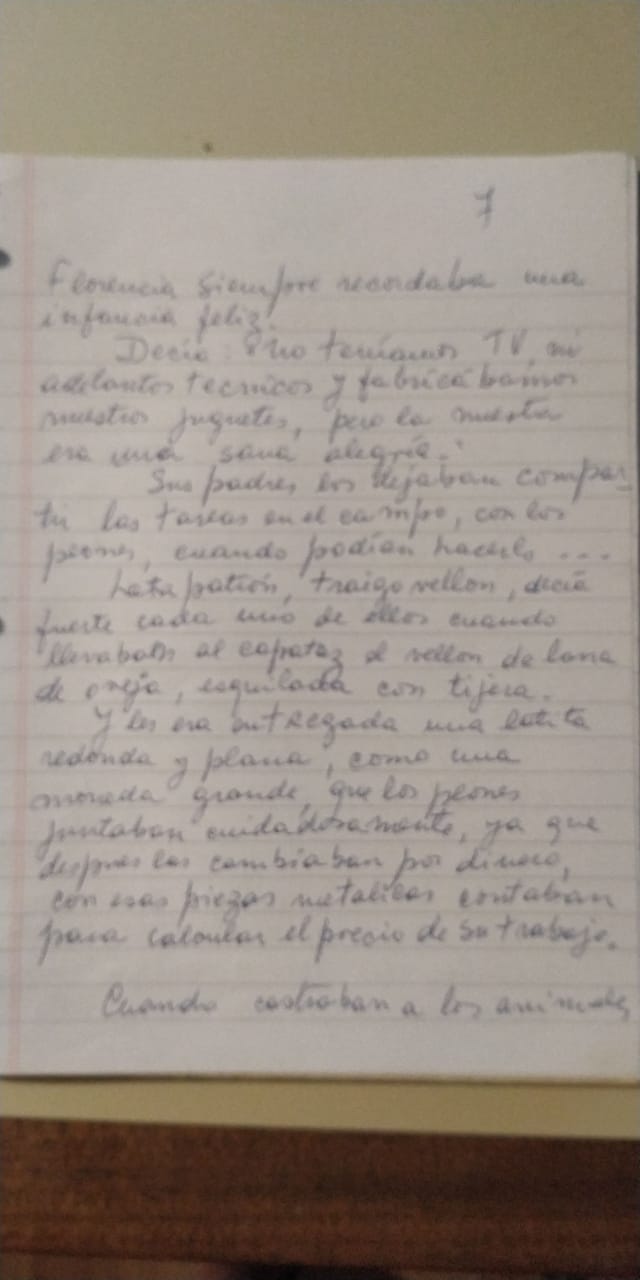 7
Florencia siempre recordaba una
infancia feliz.
Decía: "no teníamos TV, ni
adelantos tecnicos y fabricábamos
nuestros juguetes, pero la nuestra
era una sana alegría."
Sus padres los dejaban compar-
tir las tareas en el campo, con los
peones, cuando podían hacerlo ...
Lata patrón, traigo vellon, decía
fuerte cada uno de ellos cuando
llevaban al capataz el vellon de lana
de oveja, esquilada con tijera.
Y les era entregada una latita
redonda y plana, como una
moneda grande, que los peones
juntaban cuidadosamente, ya que
despues las cambiaban por dinero,
con esas piezas metalicas contaban
para calcular el precio de su trabajo.
Cuando castraban a los animales,